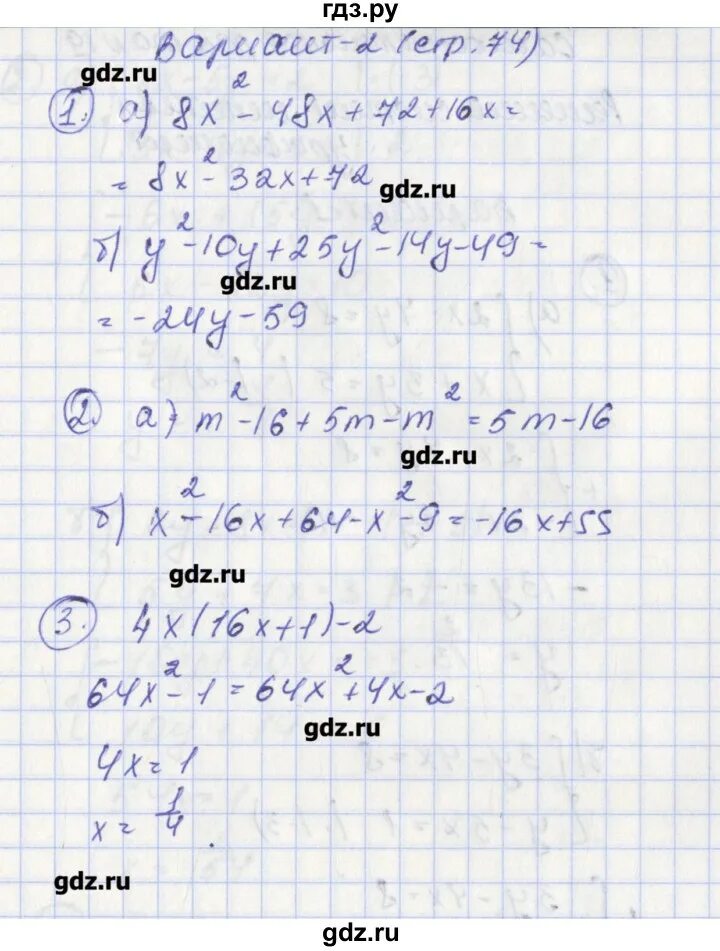 гдз.ру
Вариант-2 (стр. 74)
gdz.ru
1. а) 8x² - 48x + 72 + 16x =
= 8x² - 32x + 72
gdz.ru
б) y² - 10y + 25y² - 14y - 49 =
gdz.ru
= -24y - 59
2. а) m² - 16 + 5m - m² = 5m - 16
gdz.ru
б) x² - 16x + 64 - x² - 9 = -16x + 55
gdz.ru
3. 4x(16x + 1) - 2
64x² - 1 = 64x² + 4x - 2
gdz.ru
4x = 1
x = 1/4
gdz.ru
gdz.ru